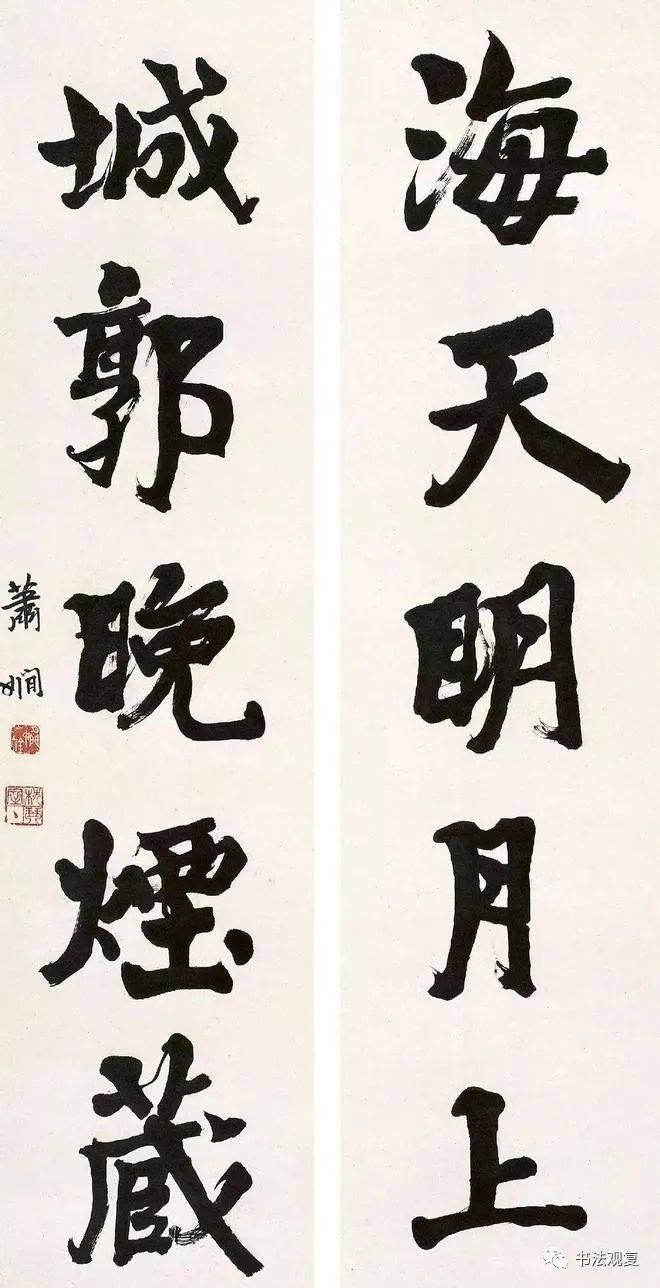 海天明月上
城郭晚煙藏
蕭嫻
書法观复